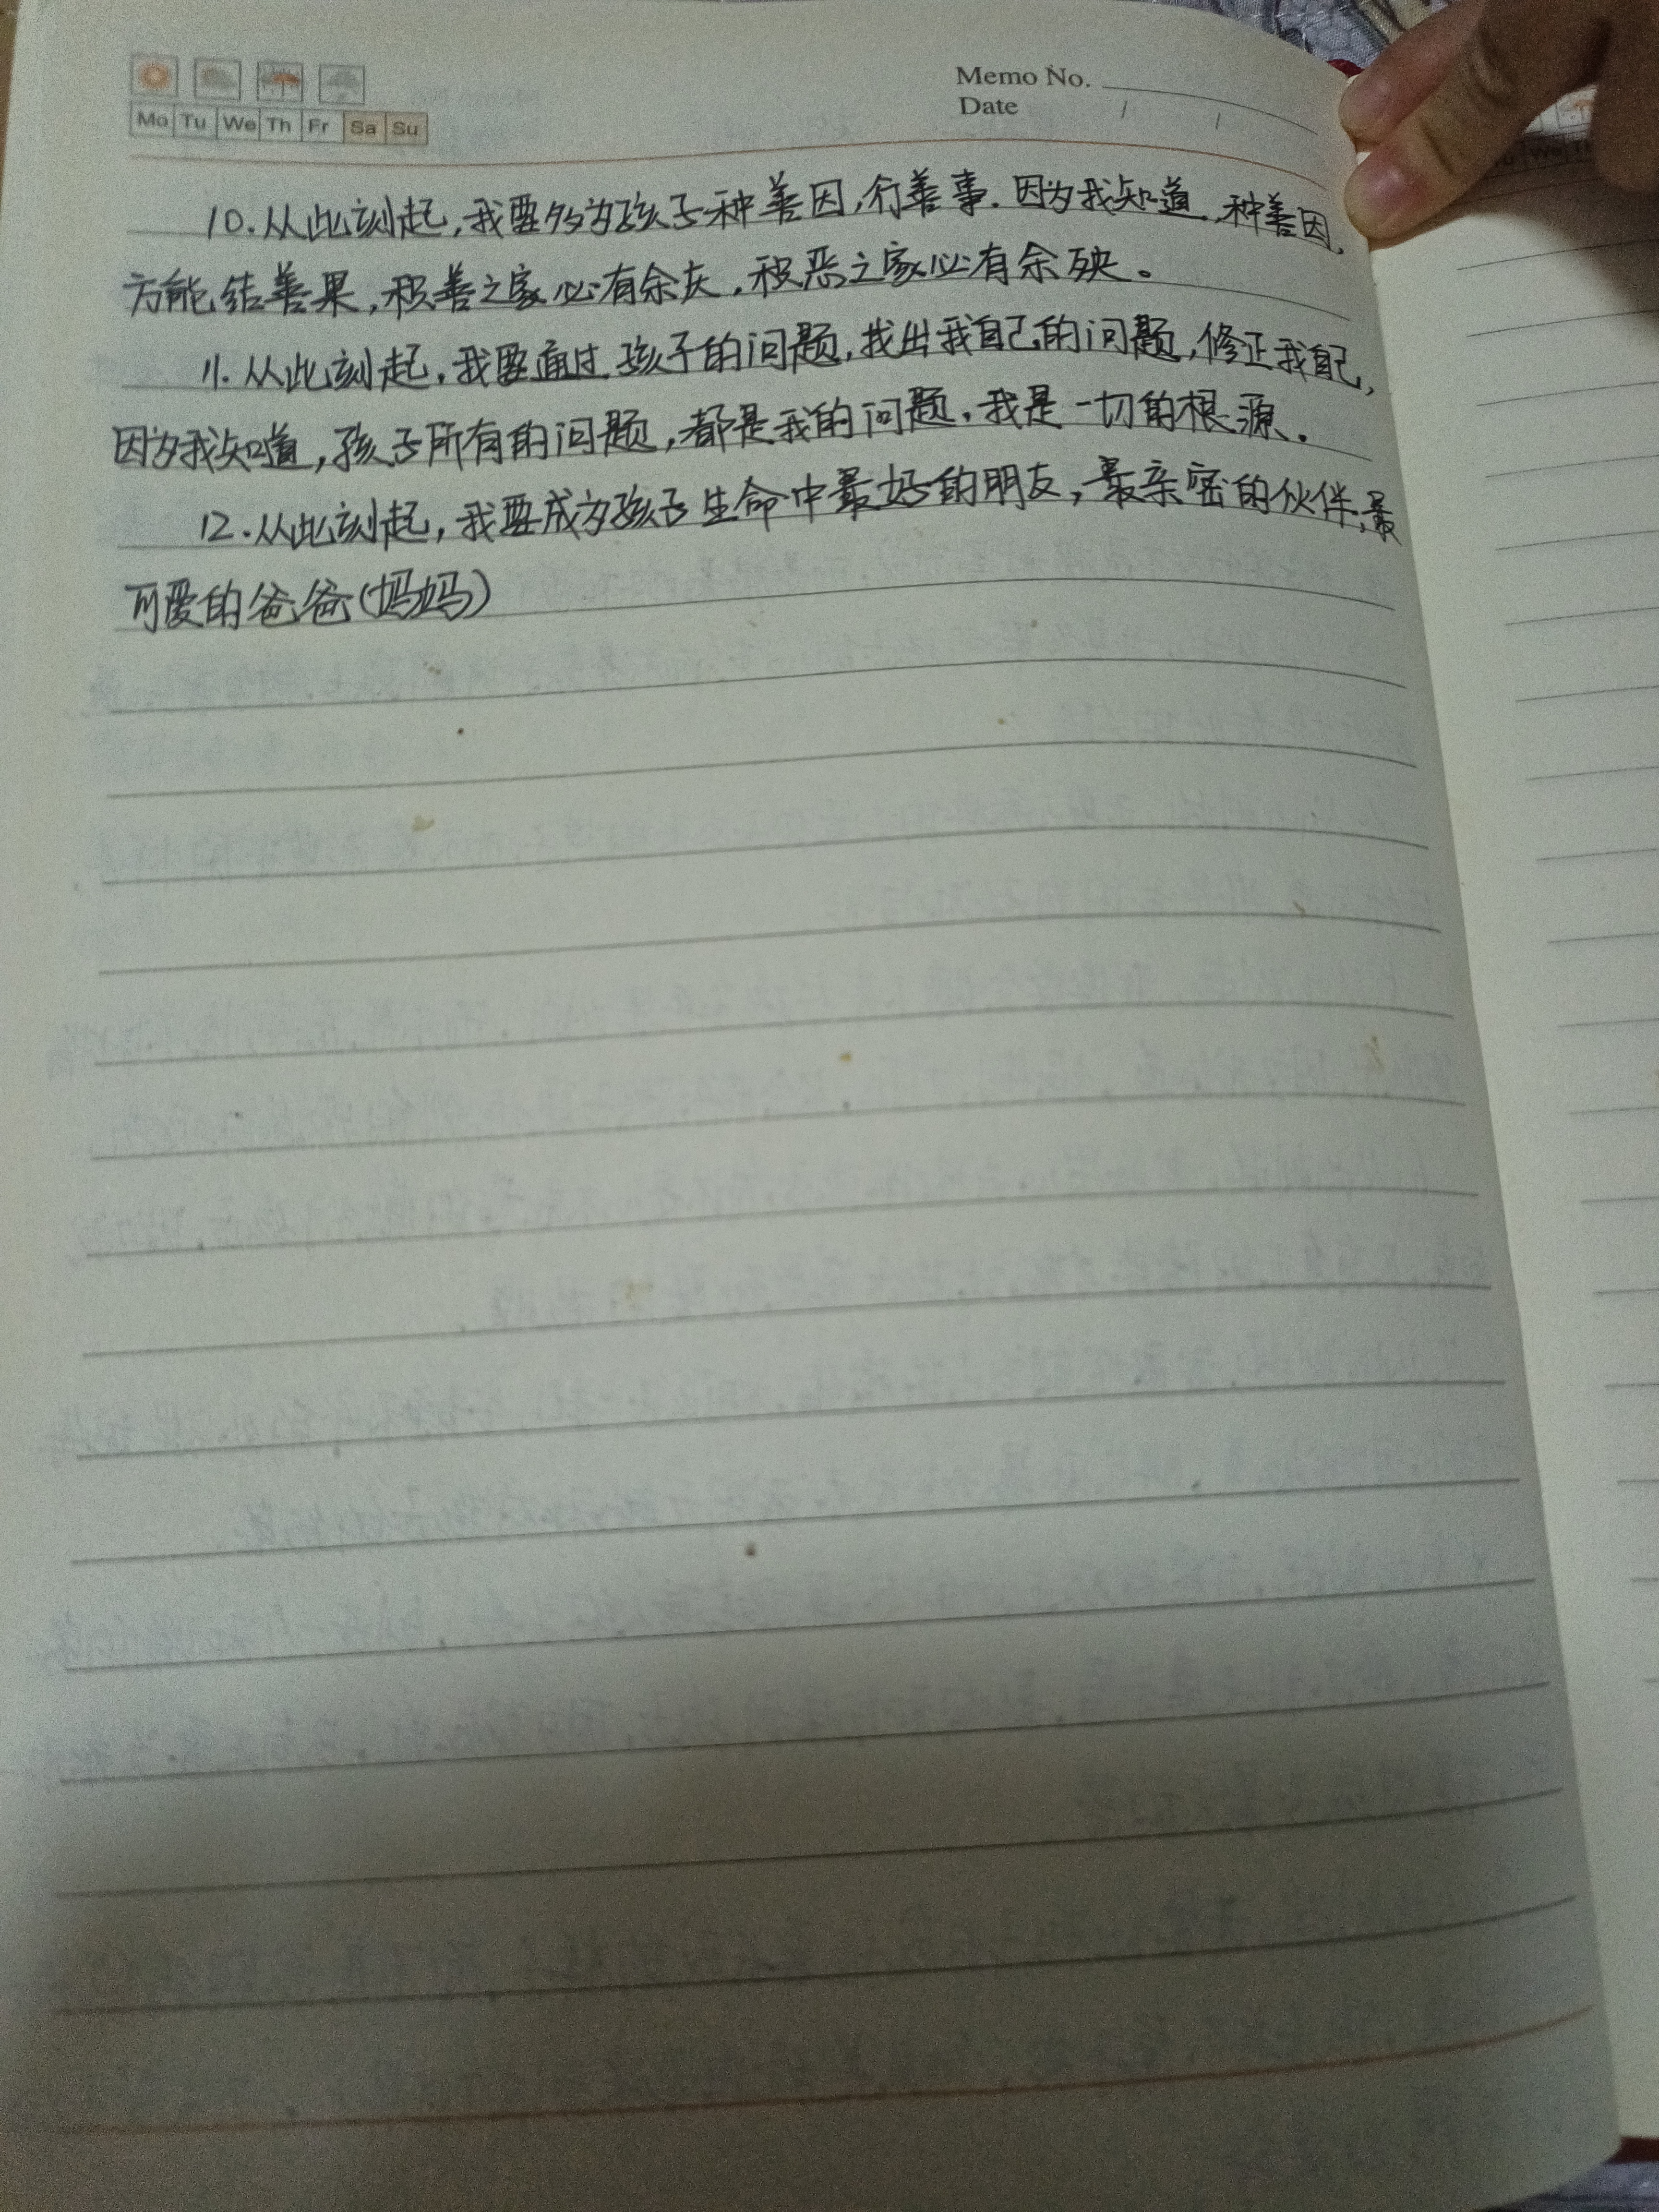 Memo No.
Date / /
Mo Tu We Th Fr Sa Su
10.从此刻起,我要多为孩子种善因,行善事.因为我知道,种善因,
方能结善果,积善之家必有余庆,积恶之家必有余殃。
11.从此刻起,我要通过孩子的问题,找出我自己的问题,修正我自己,
因为我知道,孩子所有的问题,都是我的问题,我是一切的根源.
12.从此刻起,我要成为孩子生命中最好的朋友,最亲密的伙伴,最
可爱的爸爸(妈妈)